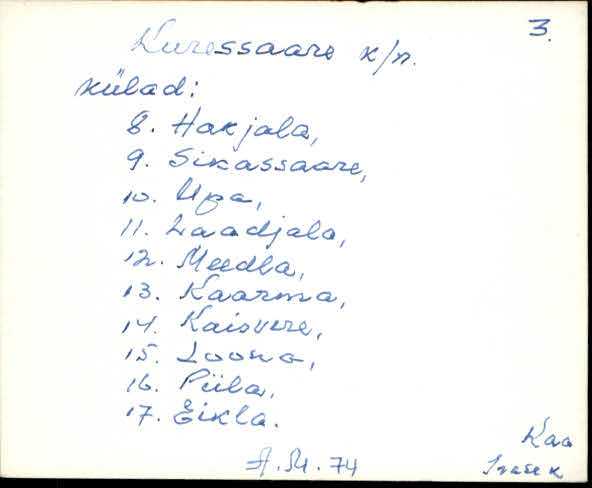 3.
Kuressaare k/n.
külad:
8. Hakjala,
9. Sikassaare,
10. Upa,
11. Laadjala,
12. Meedla,
13. Kaarma,
14. Kaisvere,
15. Loona,
16. Piila,
17. Eikla.
Kaa
A. M. 74